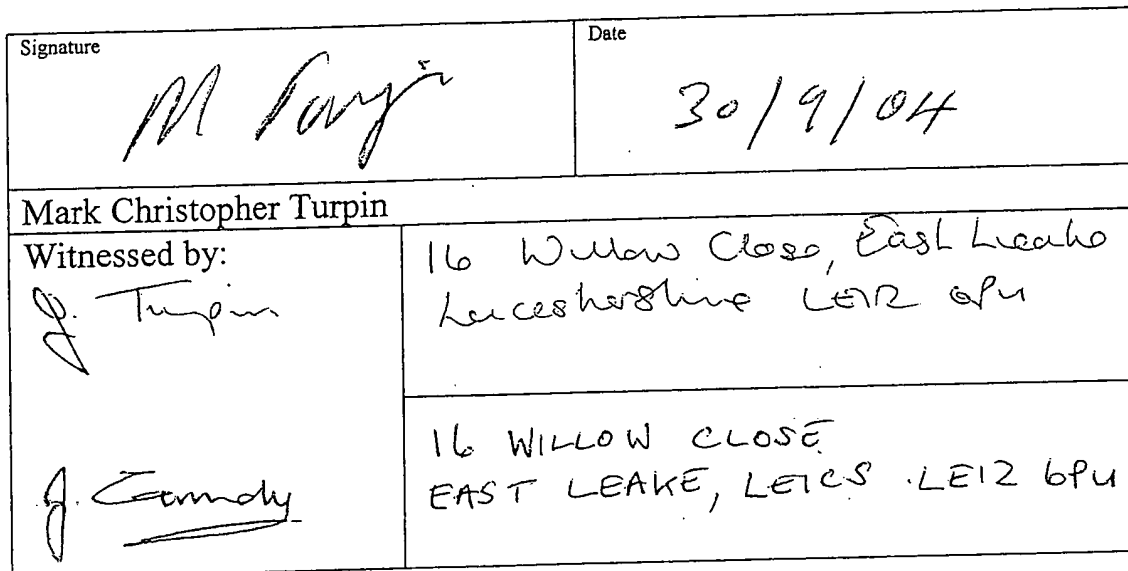 Signature
Date
M Turpin
30/9/04
Mark Christopher Turpin
Witnessed by:
16 Willow Close, East Leake
Leicestershire LE12 6PU
J. Turpin
16 WILLOW CLOSE
EAST LEAKE, LEICS. LE12 6PU
J.